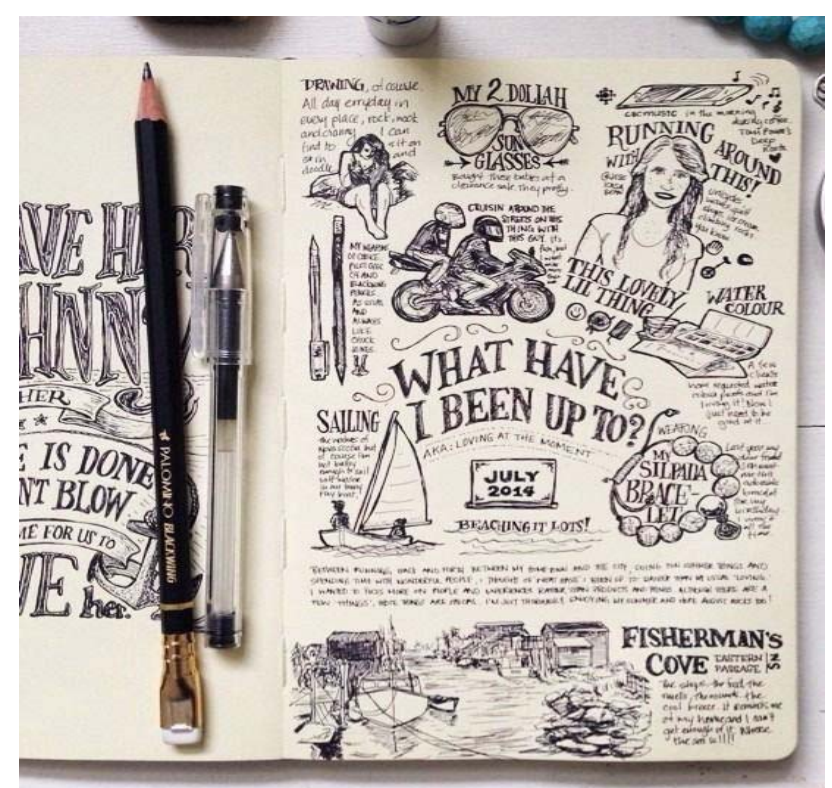 AVE HER
HNNY
HER
E IS DONE
NT BLOW
ME FOR US TO
VE her.
PALOMINO BLACKWING
DRAWING, of course.
All day erryday in
every place, rock, nook
and cranny I can
find to sit on
and
doodle.
MY 2 DOLLAH
SUN
GLASSES
Bought these babies at a
clearance sale. They pretty.
cbcmusic in the morning
during coffee.
Tom Power's
Deep
Roots
RUNNING
AROUND
WITH
THIS!
THIS LOVELY
LIL THING
CRUISIN AROUND THE
STREETS ON THIS
THING WITH
THIS GUY. It's
MY WEAPONS
OF CHOICE.
PILOT
AND
BLACKWING
PENCILS.
AS USUAL
AND
ALWAYS
LIKE
CHUCK
WATER
COLOUR
A few
clients
have requested water
colour
loving it! Now I
just need to be
good at it..
WHAT HAVE
I BEEN UP TO?
AKA: LOVING AT THE MOMENT
SAILING
the waters of
Nova Scotia but
of course I'm
not
enough to sail
JULY
2014
BEACHING IT LOTS!
WEARING
MY
SILPADA
BRACE-
LET
Last year my
awesome
bracelet
birthday
I wear it
all the
time.
BETWEEN RUNNING BACK AND FORTH BETWEEN MY HOMETOWN AND THE CITY, DOING FUN SUMMER THINGS AND
SPENDING TIME WITH WONDERFUL PEOPLE, I THOUGHT OF WHAT HAVE I BEEN UP TO RATHER THAN MY USUAL 'LOVING'.
I WANTED TO FOCUS MORE ON PEOPLE AND EXPERIENCES RATHER THAN PRODUCTS AND THINGS. ALTHOUGH THERE ARE A
FEW 'THINGS', THESE THINGS ARE SPECIAL. I'M JUST THOROUGHLY ENJOYING MY SUMMER AND HOPE AUGUST ROCKS TOO!
FISHERMAN'S
COVE EASTERN PASSAGE NS
The shops, the food, the
smells, the sounds, the
cool breeze. It reminds me
of my home and I can't
get enough of it. Where
the sea is!!!!